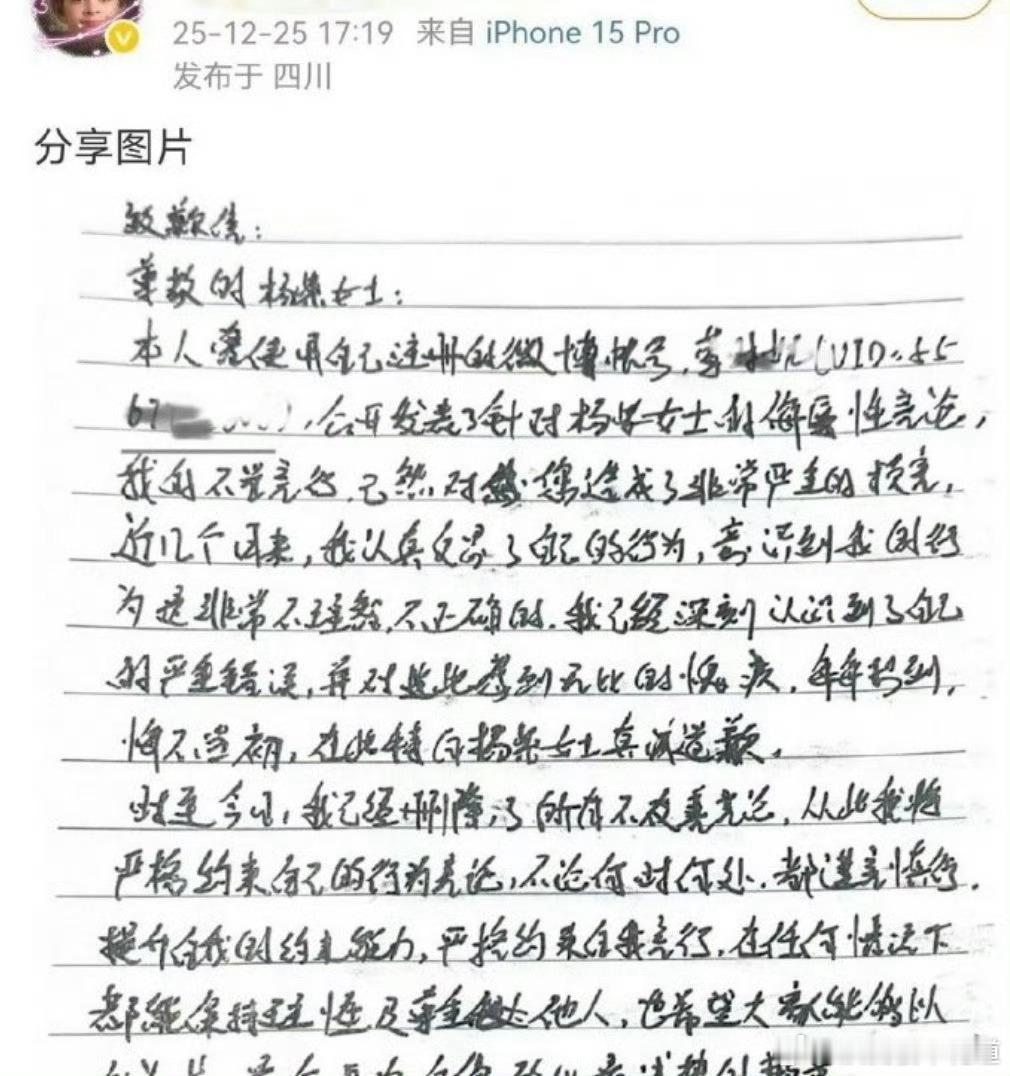 25-12-25 17:19 来自 iPhone 15 Pro
发布于 四川
分享图片
致歉信：
尊敬的杨紫女士：
本人曾使用自己注册的微博帐号，(UID:55
67），公开发表了针对杨紫女士的侮辱性言论，
我的不当言行，已然对您造成了非常严重的损害，
近几个月来，我认真反思了自己的行为，意识到我的行
为是非常不理智，不正确的，我已经深刻认识到了自己
的严重错误，并对此感到无比的愧疚，每每想到，
悔不当初，在此特向杨紫女士真诚道歉。
时至今日，我已经删除了所有不友善言论，从此我将
严格约束自己的行为言论，不论何时何处，都谨言慎行，
提升自我的约束能力，严格约束自我言行，在任何情况下
都能保持理性及尊重他人，也希望大家能够以